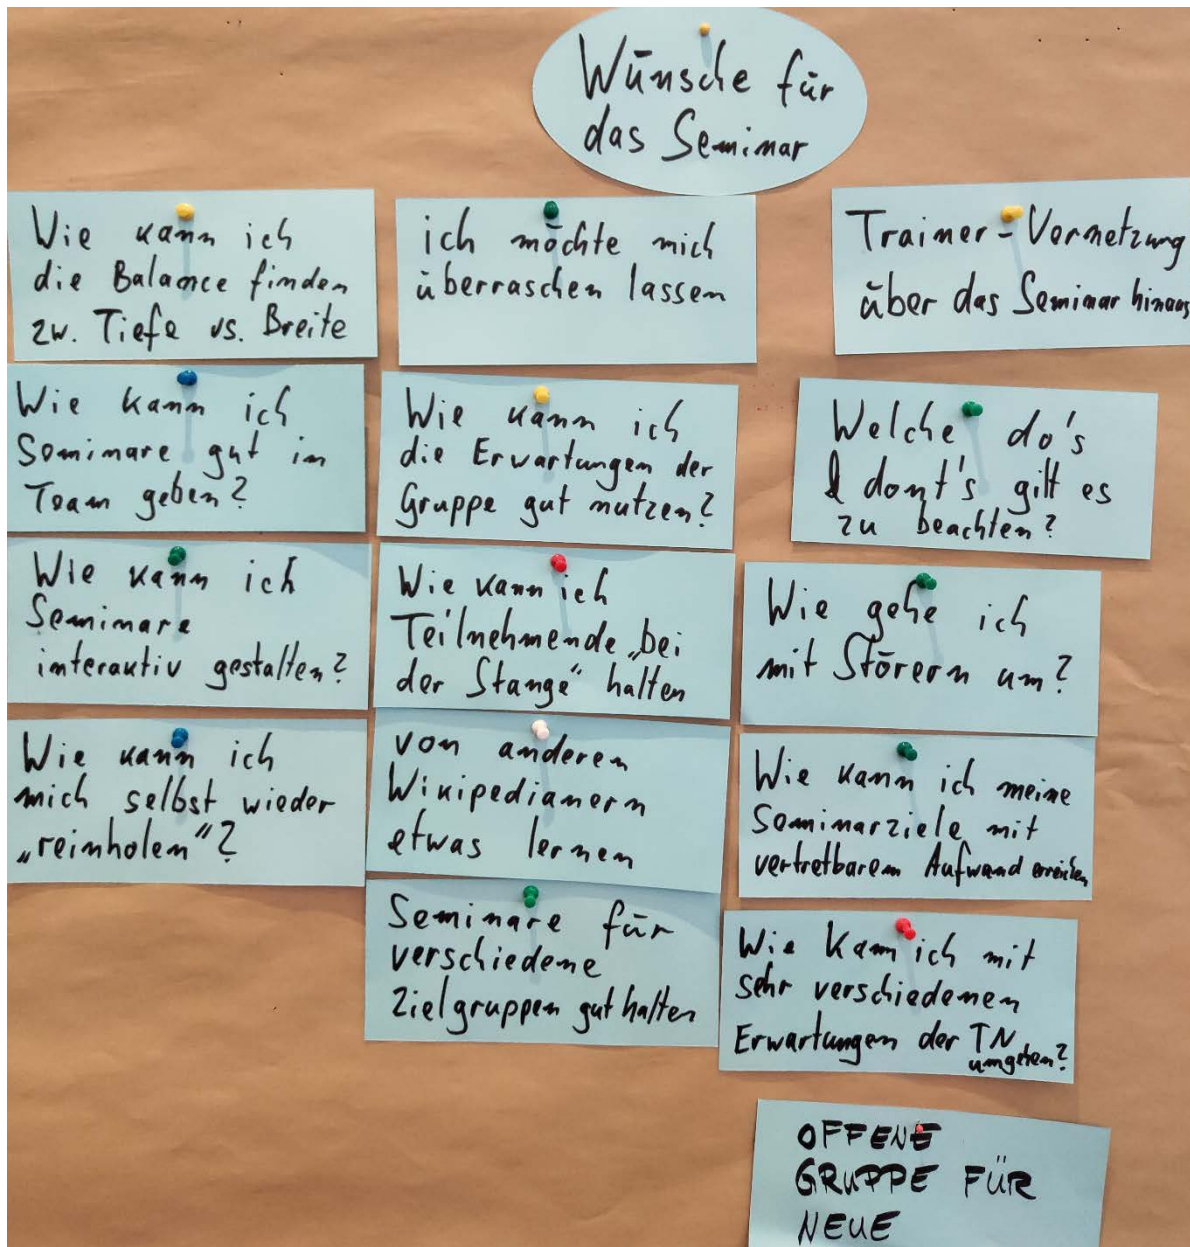 Wünsche für
das Seminar
Wie kann ich
die Balance finden
zw. Tiefe vs. Breite
Wie kann ich
Seminare gut im
Team geben?
Wie kann ich
Seminare
interaktiv gestalten?
Wie kann ich
mich selbst wieder
„reinholen“?
ich möchte mich
überraschen lassen
Wie kann ich
die Erwartungen der
Gruppe gut nutzen?
Wie kann ich
Teilnehmende „bei
der Stange“ halten
von anderen
Wikipedianern
etwas lernen
Seminare für
verschiedene
Zielgruppen gut halten
Trainer-Vernetzung
über das Seminar hinaus
Welche do's
& dont's gilt es
zu beachten?
Wie gehe ich
mit Störern um?
Wie kann ich meine
Seminarziele mit
vertretbarem Aufwand erreichen
Wie kann ich mit
sehr verschiedenen
Erwartungen der TN
umgehen?
OFFENE
GRUPPE FÜR
NEUE